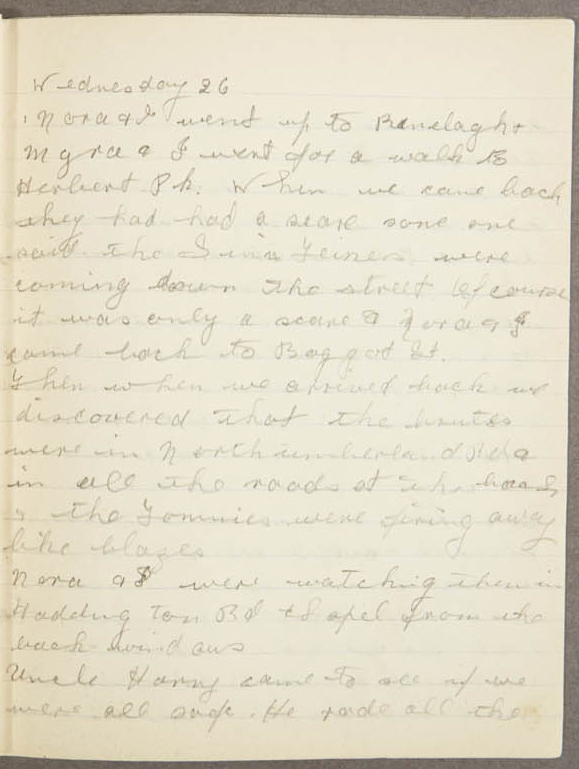 Wednesday 26
Nora & I went up to Ranelagh &
Myra & I went for a walk to
Herbert Pk. When we came back
they had had a scare some one
said the Sinn Feiners were
coming down the street Of course
it was only a scare & Nora & I
came back to Baggot St.
Then when we arrived back we
discovered that the brutes
were in Northumberland Rd &
in all the roads at the back
& the Tommies were firing away
like blazes
Nora & I were watching them in
Haddington Rd from the
back windows
Uncle Harry came to see if we
were all safe. He rode all the